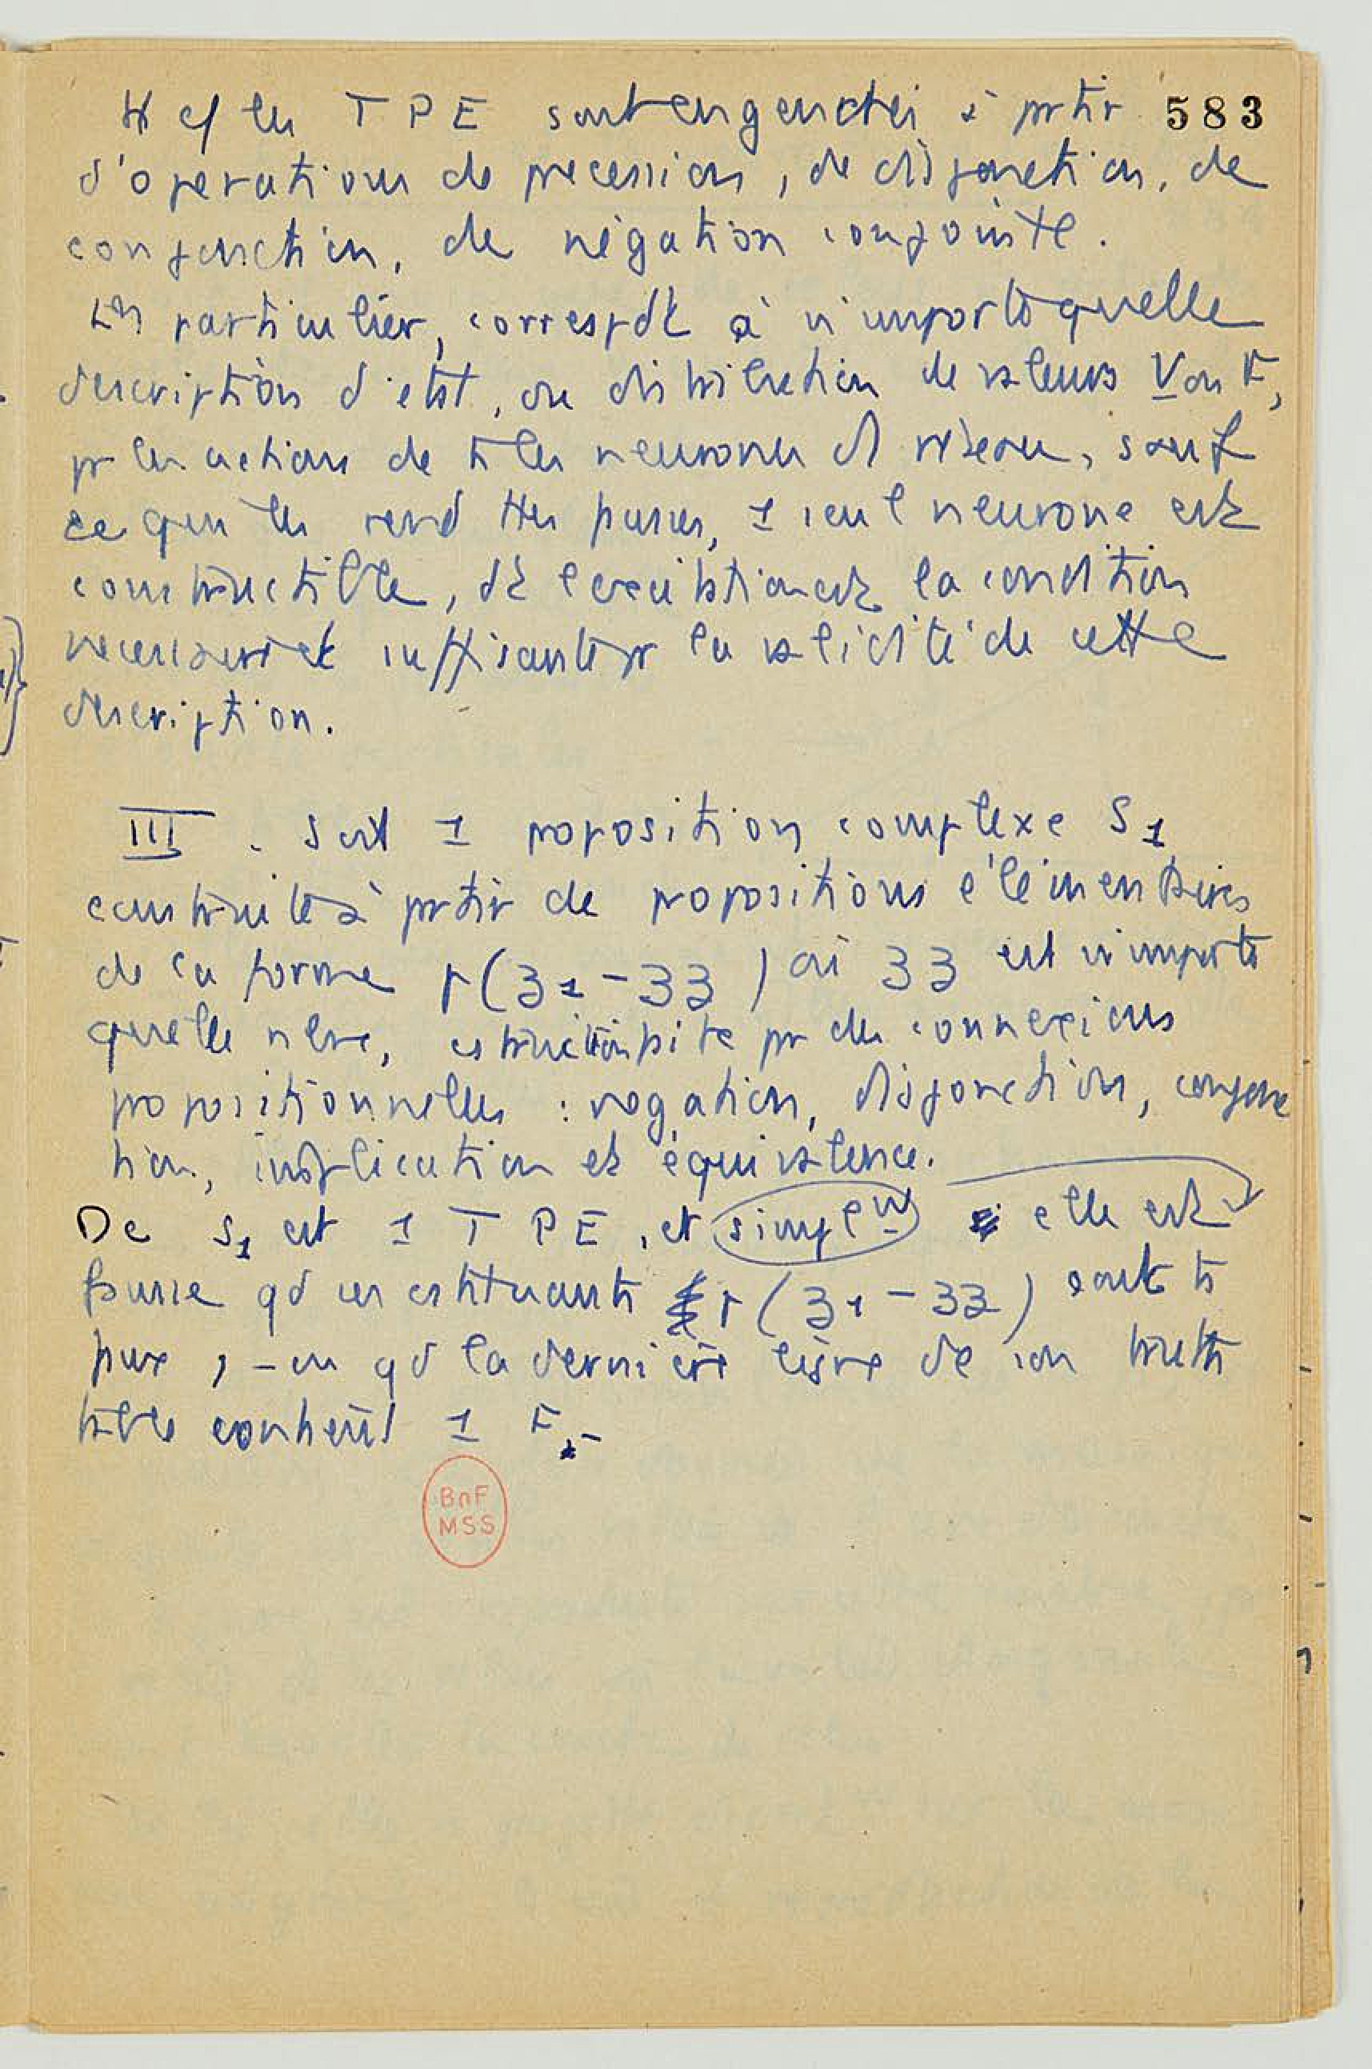 583
Tt cf les TPE sont engendrés à prtir
d'operations de precession, de disjonction, de
conjonction, de négation conjointe.
En particulier, correspdt à n'importe quelle
description d'etat, ou distribution de valeurs V ou F,
pr les actions de ts les neurones d1 réseau, sauf
ce qui les rend ttes fausses, 1 seul neurone est
constructible, dt l'excitation est la condition
necessaire et suffisante pr la validité de cette
description.
III. Soit 1 proposition complexe S1
construite à prtir de propositions élémentaires
de la forme p(z1 - zz) où zz est n'importe
quelle
propositionnelles : négation, disjonction, conjonc
tion, implication et équivalence.
Dc S1 est 1 TPE, et simplemt si elle est
fausse qd ses cstituants p(z1 - zz) sont ts
faux, - ou qd la dernière ligne de son truth
table contient 1 F. -
BnF
MSS